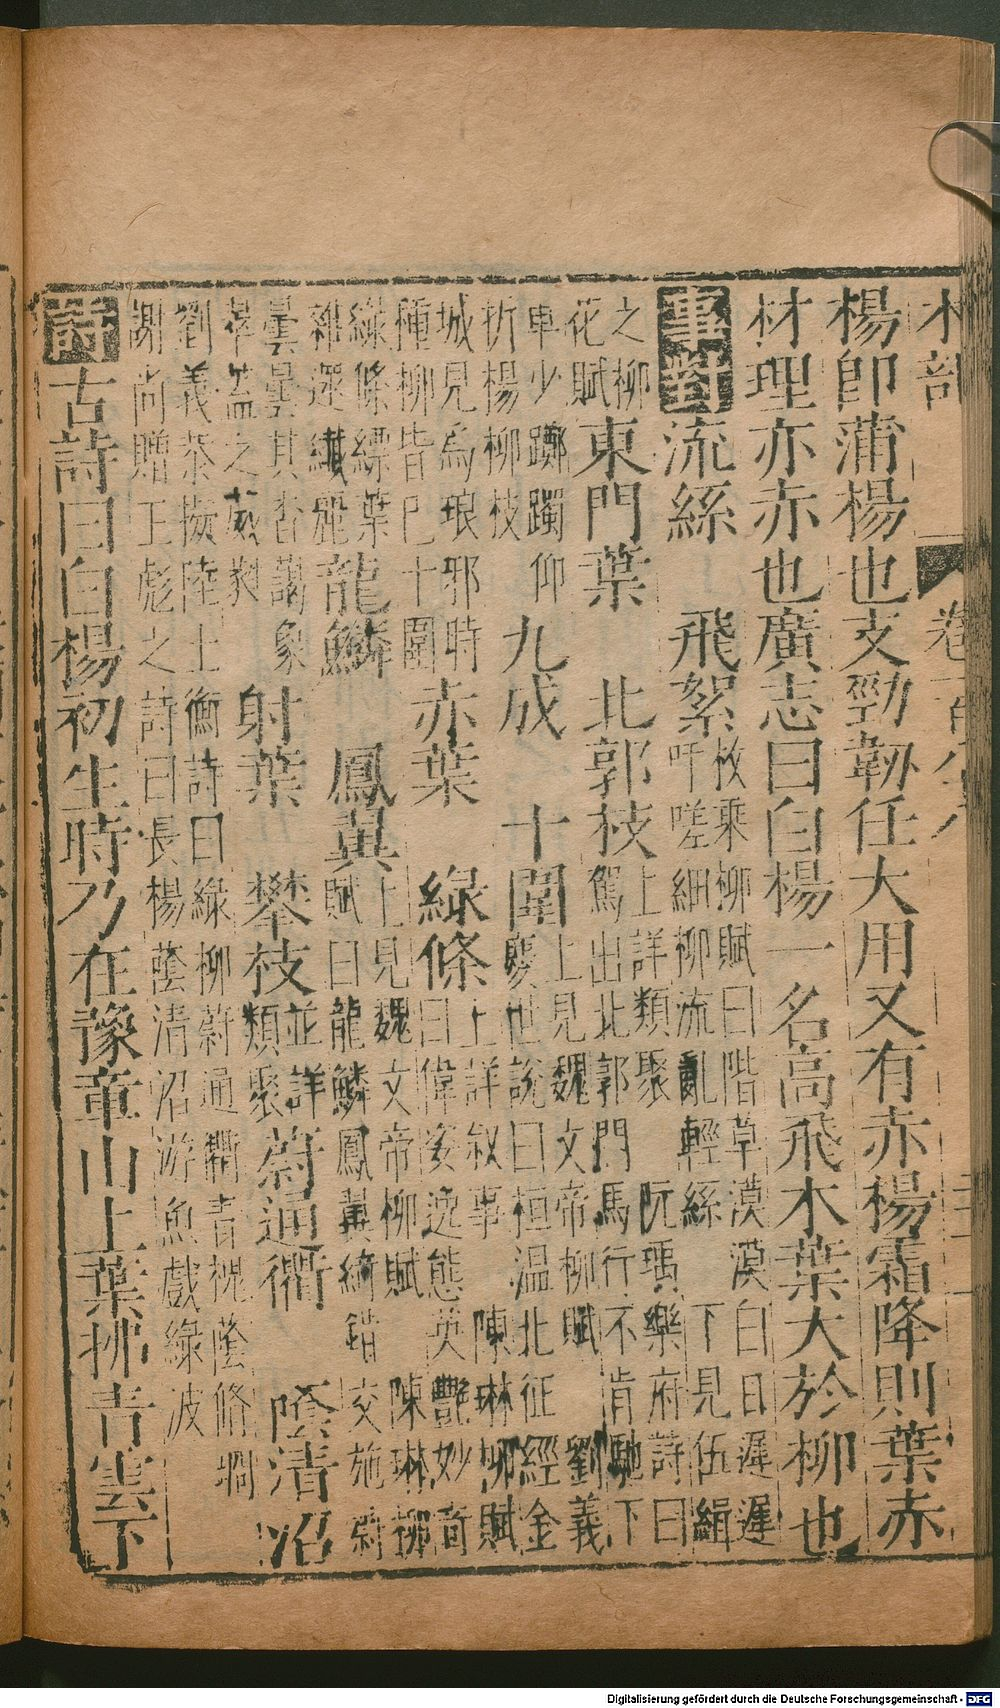 木部 卷一百八十八
楊卽蒲楊也支勁韌任大用又有赤楊霜降則葉赤
材理亦赤也廣志曰白楊一名高飛木葉大於柳也
事對流絲 飛絮枚乘柳賦曰階草漠漠白日遲遲
吁嗟細柳流亂輕絲 下見伍緝
之柳
花賦東門葉 北郭枝上詳類聚 阮瑀樂府詩曰
駕出北郭門馬行不肯馳下
車少躑躅仰
折楊柳枝 九成 十圍上見魏文帝柳賦 劉義
慶世說曰桓温北征經金
城見爲琅邪時
種柳皆已十圍 赤葉 綠條上詳敘事 陳琳柳賦
曰偉姿逸態英艷妙奇
綠條縹葉
雜遝纖麗 龍鱗 鳳翼上見魏文帝柳賦 陳琳柳
賦曰龍鱗鳳翼綺錯交施
曇曇其杳藹象
翠蓋之葳蕤 射葉 攀枝並詳
類聚 蔚通衢 蔭清沼
劉義恭擬陸士衡詩曰綠柳蔚通衢青槐蔭脩坰
謝尚贈王彪之詩曰長楊蔭清沼游魚戲綠波
詩古詩曰白楊初生時乃在豫章山上葉拂青雲下
Digitalisierung gefördert durch die Deutsche Forschungsgemeinschaft - DFG